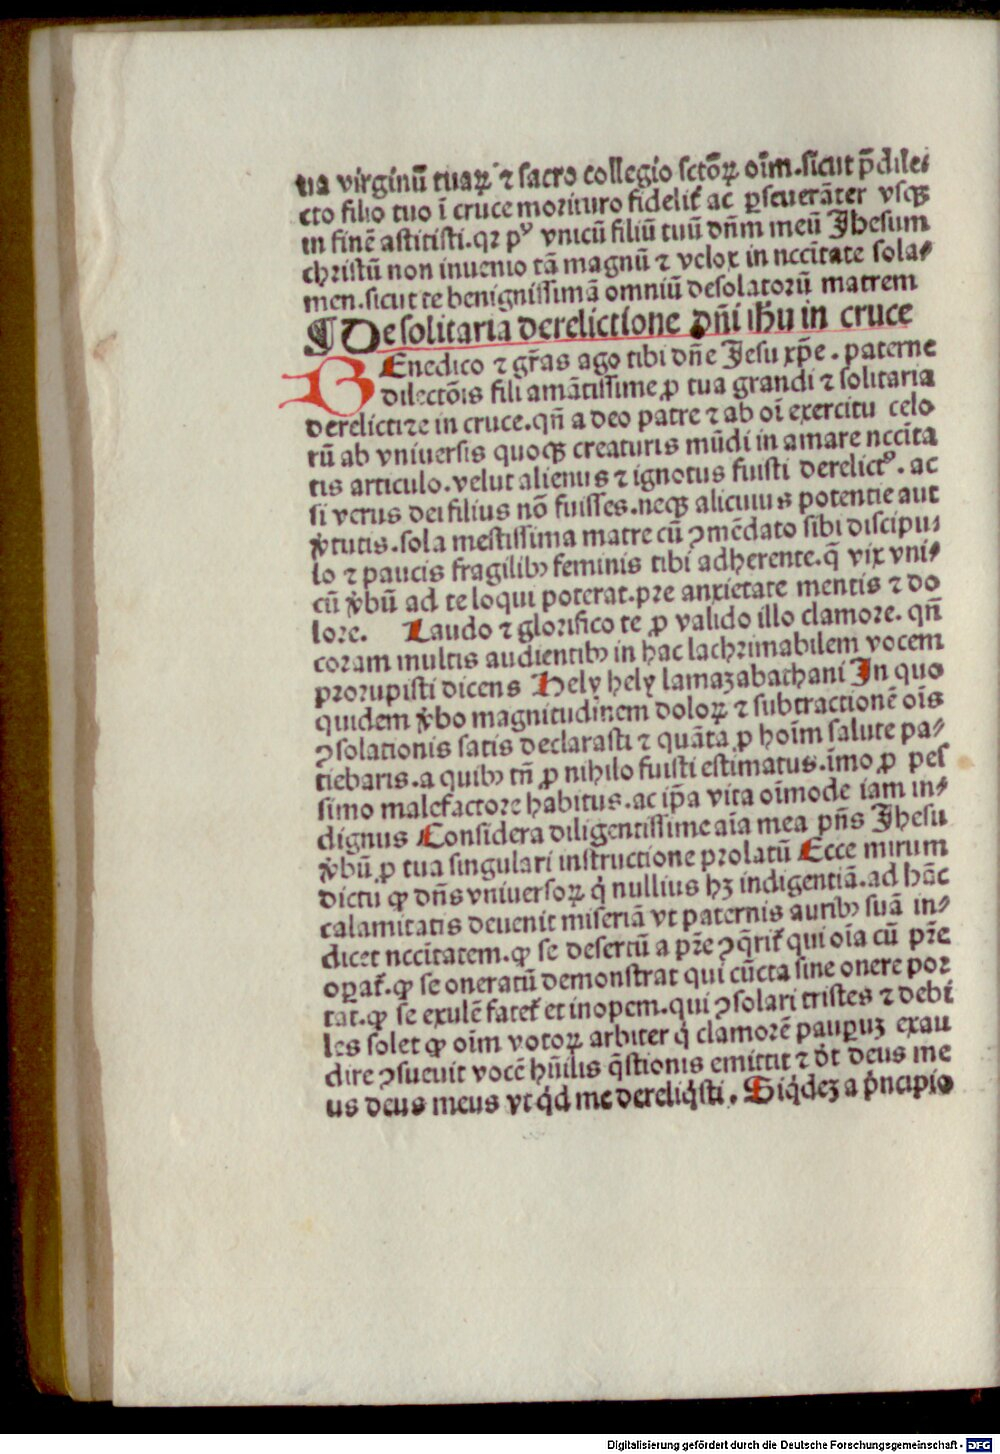 ua virginū tuaꝝ ⁊ sacro collegio sctōꝝ oīm.sicut p̄dile⸗
cto filio tuo ī cruce morituro fidelit̄ ac ꝑseuerāter vsqꝫ
in finē astitisti.qꝛ pꝰ vnicū filiū tuū dn̄m meū Jhesum
christū non inuenio tā magnū ⁊ velox in nccītate sola⸗
men.sicut te benignissimā omniū desolatorū matrem
¶ De solitaria derelictione dn̄i ih̄u in cruce
BEnedico ⁊ gr̄as ago tibi dn̄e Jesu xp̄e . paterne
dilectōis fili amātissime ꝓ tua grandi ⁊ solitaria
derelictiōe in cruce.qn̄ a deo patre ⁊ ab oī exercitu celo
rū ab vniuersis quoqꝫ creaturis mūdi in amare nccīta
tis articulo.velut alienus ⁊ ignotus fuisti derelictꝰ. ac
si verus dei filius nō fuisses.neqꝫ alicuius potentie aut
v̓tutis.sola mestissima matre cū ꝯmēdato sibi discipu⸗
lo ⁊ paucis fragilibꝫ feminis tibi adherente.q̄ vix vni⸗
cū v̓bū ad te loqui poterat.pre anxietate mentis ⁊ do
lore. Laudo ⁊ glorifico te ꝓ valido illo clamore. qn̄
coram multis audientibꝫ in hac lachrimabilem vocem
prorupisti dicens Hely hely lamazabathani In quo
quidem v̓bo magnitudinem doloꝝ ⁊ subtractionē oīs
ꝯsolationis satis declarasti ⁊ quāta ꝓ hoīm salute pa⸗
tiebaris.a quibꝫ tn̄ ꝓ nihilo fuisti estimatus.īmo ꝓ pes
simo malefactore habitus.ac ip̄a vita oīmode iam in⸗
dignus Considera diligentissime aīa mea pn̄s Jhesu
v̓bū ꝓ tua singulari instructione prolatū Ecce mirum
dictu ꝙ dn̄s vniuersoꝝ q̇ nullius hꝫ indigentiā.ad hāc
calamitatis deuenit miseriā vt paternis auribꝫ suā in⸗
dicet nccītatem.ꝙ se desertū a pr̄e ꝯq̄rit̄ qui oīa cū pr̄e
oꝑat̄.ꝙ se oneratū demonstrat qui cūcta sine onere por
tat.ꝙ se exulē fatet̄ et inopem.qui ꝯsolari tristes ⁊ debi
les solet ꝙ oīm votoꝝ arbiter q̇ clamorē pauꝑuꝫ exau
dire ꝯsueuit vocē hūilis q̄stionis emittit ⁊ dt̄ deus me
us deus meus vt q̇d me dereliq̇sti. Siq̇deꝫ a p̓ncipio
Digitalisierung gefördert durch die Deutsche Forschungsgemeinschaft - DFG